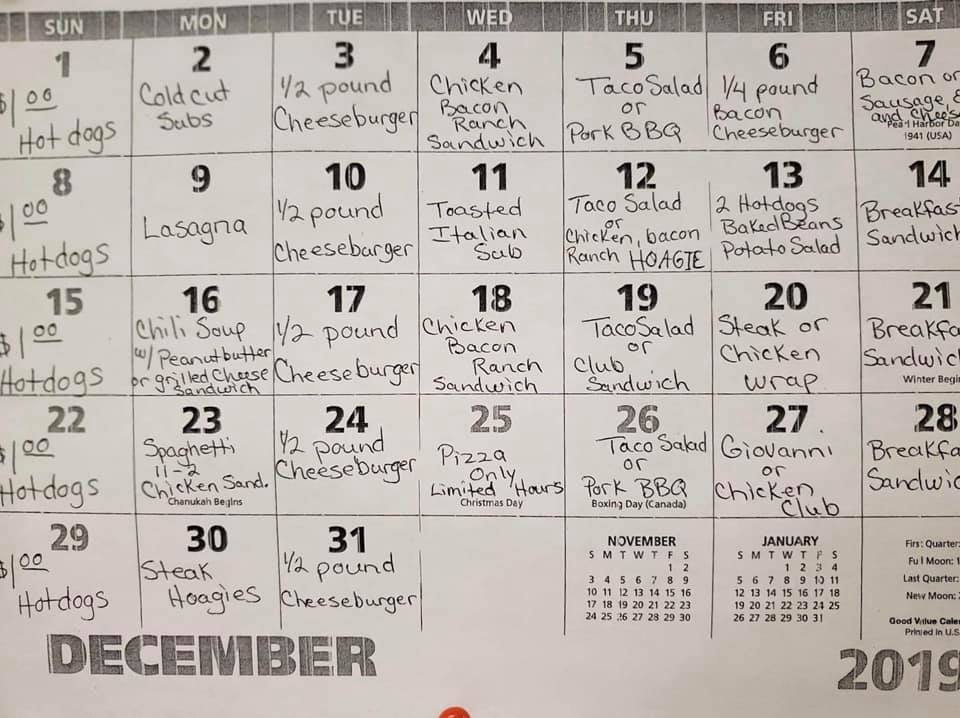 SUN MON TUE WED THU FRI SAT
1
$1 00
Hot dogs
2
Cold cut
Subs
3
1/2 pound
Cheeseburger
4
Chicken
Bacon
Ranch
Sandwich
5
Taco Salad
or
Pork BBQ
6
1/4 pound
Bacon
Cheeseburger
7
Bacon or
Sausage, &
and Chees
Pearl Harbor Da
1941 (USA)
8
$1 00
Hotdogs
9
Lasagna
10
1/2 pound
Cheeseburger
11
Toasted
Italian
Sub
12
Taco Salad
or
Chicken, bacon
Ranch HOAGIE
13
2 Hotdogs
Baked Beans
Potato Salad
14
Breakfas
Sandwich
15
$1 00
Hotdogs
16
Chili Soup
w/ Peanutbutter
or grilled Cheese
Sandwich
17
1/2 pound
Cheeseburger
18
Chicken
Bacon
Ranch
Sandwich
19
Taco Salad
or
Club
Sandwich
20
Steak or
Chicken
wrap
21
Breakfa
Sandwic
Winter Begin
22
$1 00
Hotdogs
23
Spaghetti
11-2
Chicken Sand.
Chanukah Begins
24
1/2 pound
Cheeseburger
25
Pizza
Only
Limited Hours
Christmas Day
26
Taco Salad
or
Pork BBQ
Boxing Day (Canada)
27
Giovanni
or
Chicken
Club
28
Breakfa
Sandwic
29
$1 00
Hotdogs
30
Steak
Hoagies
31
1/2 pound
Cheeseburger
NOVEMBER
S M T W T F S
1 2
3 4 5 6 7 8 9
10 11 12 13 14 15 16
17 18 19 20 21 22 23
24 25 26 27 28 29 30
JANUARY
S M T W T F S
1 2 3 4
5 6 7 8 9 10 11
12 13 14 15 16 17 18
19 20 21 22 23 24 25
26 27 28 29 30 31
First Quarter:
Full Moon: 1
Last Quarter:
New Moon: 2
Good Value Cale
Printed in U.S
DECEMBER
2019